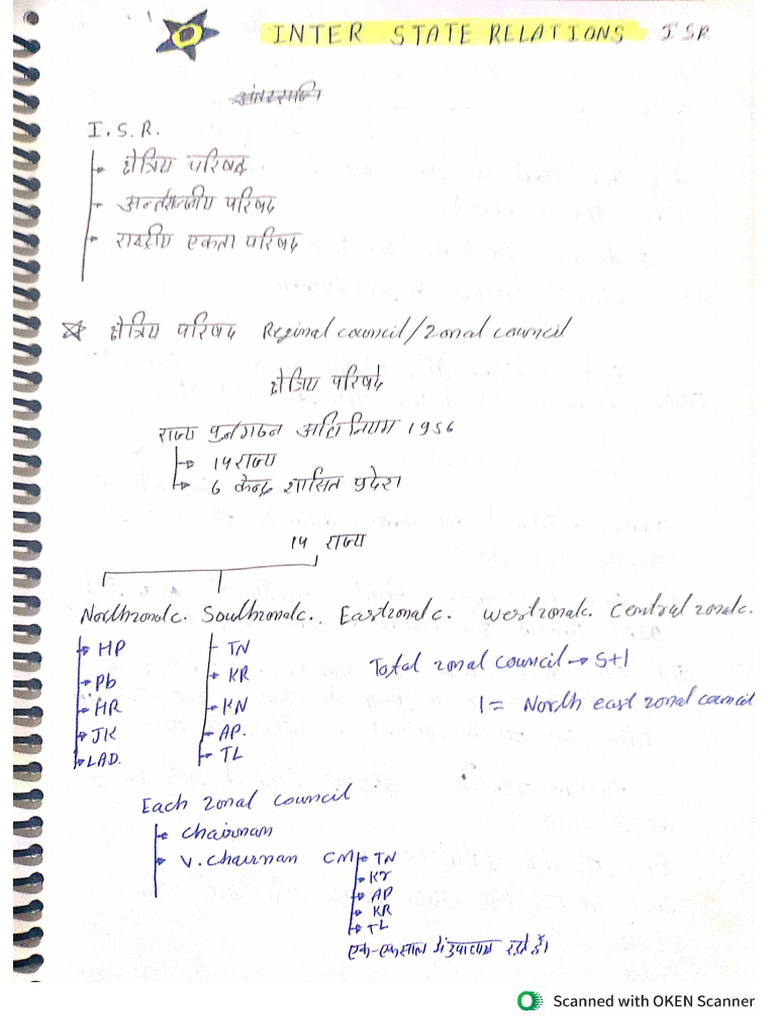 INTER STATE RELATIONS ISR
I.S.R.
क्षेत्रिय परिषद
अन्तर्राज्जीय परिषद
राष्ट्रीय एकता परिषद
क्षेत्रिय परिषद Reginal council/zonal council
क्षेत्रिय परिषदे
राज्य पुर्नगठन अधिनियम 1956
14 राज्य
6 केन्द्र शासित प्रदेश
14 राज्य
Northzonalc. Southzonalc. Eastzonalc. westzonalc. Centralzonalc.
HP
Pb
HR
JK
LAD.
TN
KR
KN
AP.
TL
Total zonal council → 5+1
1 = North east zonal council
Each zonal council
chairman
V. chairman CM TN
Kr
AP
KR
TL
एक-एक साल में उपाध्यक्ष रहते हैं।
Scanned with OKEN Scanner